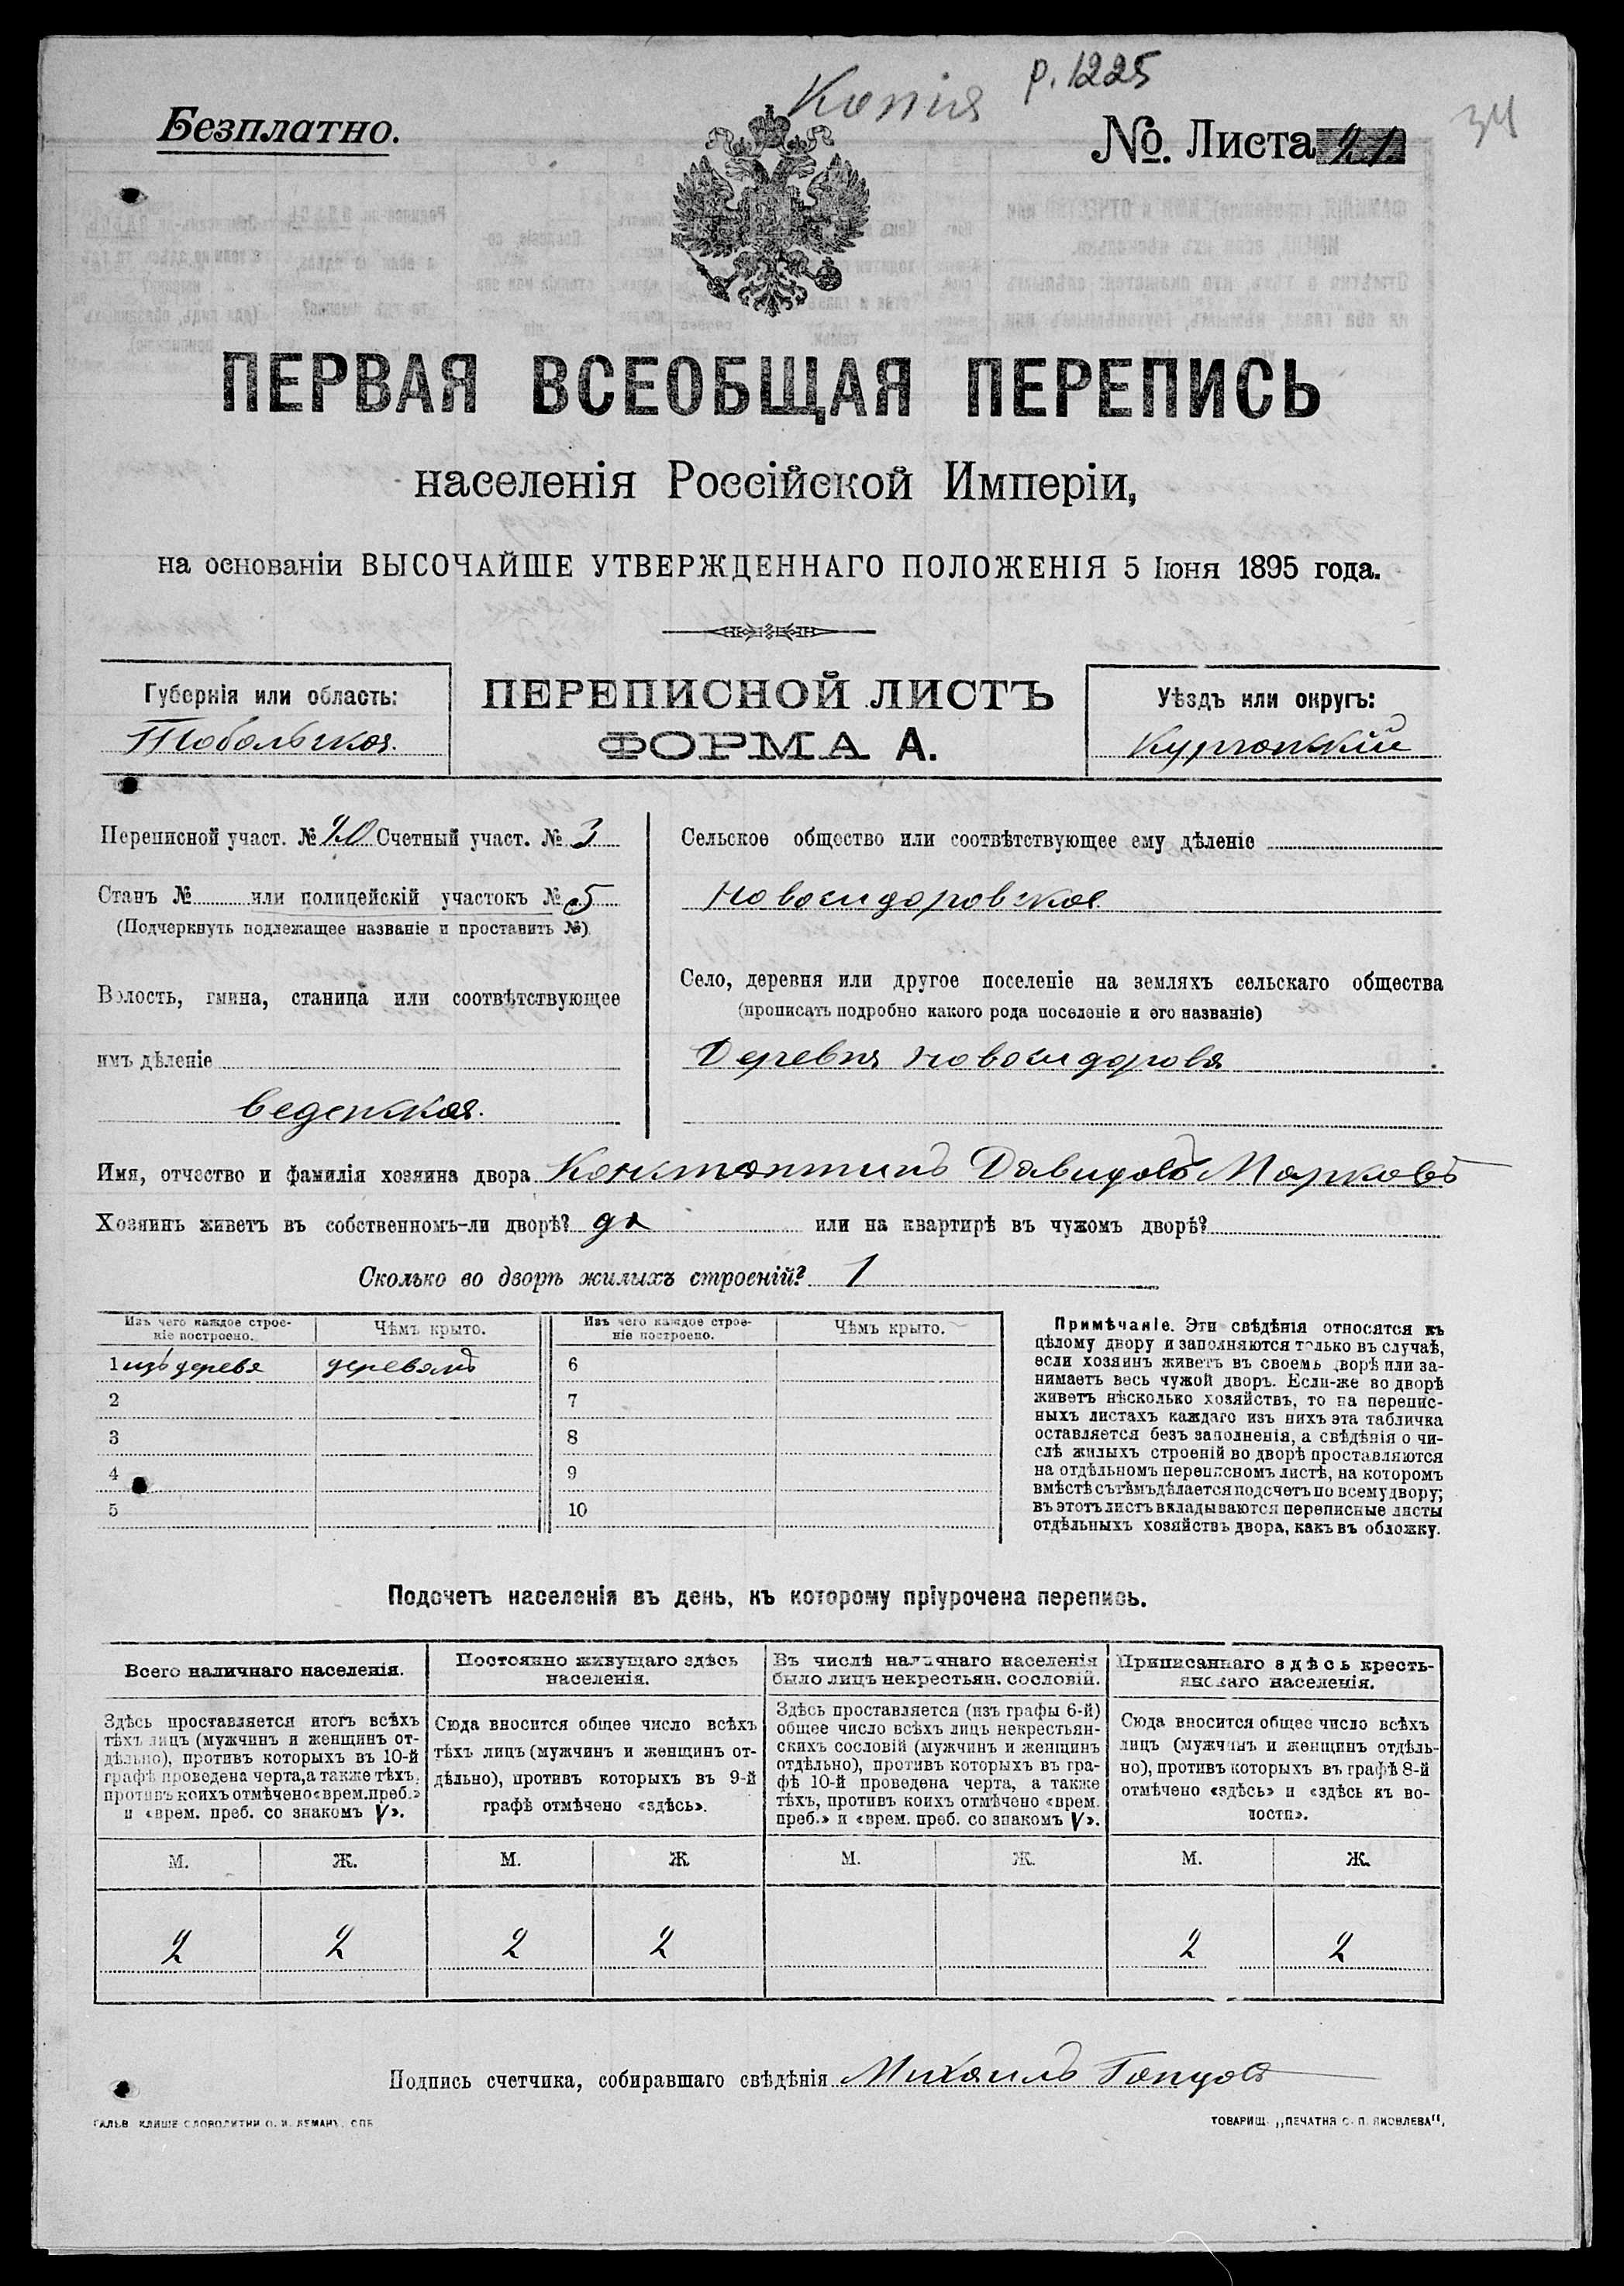 Копія р. 1225
34
Безплатно.
№. Листа 21
ПЕРВАЯ ВСЕОБЩАЯ ПЕРЕПИСЬ
населенія Россійской Имперіи,
на основаніи ВЫСОЧАЙШЕ УТВЕРЖДЕННАГО ПОЛОЖЕНІЯ 5 Іюня 1895 года.
Губернія или область:
Тобольская.
ПЕРЕПИСНОЙ ЛИСТЪ
ФОРМА А.
Уѣздъ или округъ:
Курганскій
Переписной участ. № 20 Счетный участ. № 3
Станъ № или полицейскій участокъ № 5
(Подчеркнуть подлежащее названіе и проставить №)
Волость, гмина, станица или соотвѣтствующее
имъ дѣленіе
Веденская.
Сельское общество или соотвѣтствующее ему дѣленіе
Новосидоровское
Село, деревня или другое поселеніе на земляхъ сельскаго общества
(прописать подробно какого рода поселеніе и его названіе)
Деревня Новосидорова
Имя, отчество и фамилія хозяина двора Константинъ Давидовъ Марковъ
Хозяинъ живетъ въ собственномъ-ли дворѣ? да или на квартирѣ въ чужомъ дворѣ?
Сколько во дворѣ жилыхъ строеній? 1
Изъ чего каждое строе-
ніе построено.
Чѣмъ крыто.
Изъ чего каждое строе-
ніе построено.
Чѣмъ крыто.
1 изъ дерева деревомъ 6
2 7
3 8
4 9
5 10
Примѣчаніе. Эти свѣдѣнія относятся къ
цѣлому двору и заполняются только въ случаѣ,
если хозяинъ живетъ въ своемъ дворѣ или за-
нимаетъ весь чужой дворъ. Если-же во дворѣ
живетъ нѣсколько хозяйствъ, то на перепис-
ныхъ листахъ каждаго изъ нихъ эта табличка
оставляется безъ заполненія, а свѣдѣнія о чи-
слѣ жилыхъ строеній во дворѣ проставляются
на отдѣльномъ переписномъ листѣ, на которомъ
вмѣстѣ съ тѣмъ дѣлается подсчетъ по всему двору;
въ этотъ листъ вкладываются переписные листы
отдѣльныхъ хозяйствъ двора, какъ въ обложку.
Подсчетъ населенія въ день, къ которому пріурочена перепись.
Всего наличнаго населенія.
Здѣсь проставляется итогъ всѣхъ
тѣхъ лицъ (мужчинъ и женщинъ от-
дѣльно), противъ которыхъ въ 10-й
графѣ проведена черта, а также тѣхъ,
противъ коихъ отмѣчено «врем. преб.»
и «врем. преб. со знакомъ V».
Постоянно живущаго здѣсь
населенія.
Сюда вносится общее число всѣхъ
тѣхъ лицъ (мужчинъ и женщинъ от-
дѣльно), противъ которыхъ въ 9-й
графѣ отмѣчено «здѣсь».
Въ числѣ наличнаго населенія
было лицъ некрестьян. сословій.
Здѣсь проставляется (изъ графы 6-й)
общее число всѣхъ лицъ некрестьян-
скихъ сословій (мужчинъ и женщинъ
отдѣльно), противъ которыхъ въ гра-
фѣ 10-й проведена черта, а также
тѣхъ, противъ коихъ отмѣчено «врем.
преб.» и «врем. преб. со знакомъ V».
Приписаннаго здѣсь кресть-
янскаго населенія.
Сюда вносится общее число всѣхъ
лицъ (мужчинъ и женщинъ отдѣль-
но), противъ которыхъ въ графѣ 8-й
отмѣчено «здѣсь» и «здѣсь къ во-
лости».
М. Ж. М. Ж М. Ж. М. Ж.
2 2 2 2 2 2
Подпись счетчика, собиравшаго свѣдѣнія Михаилъ
ГАЛЬВ. КЛИШЕ СЛОВОЛИТНИ О. И. ЛЕМАНЪ. СПБ
ТОВАРИЩ. „ПЕЧАТНЯ С. П. ЯКОВЛЕВА“,